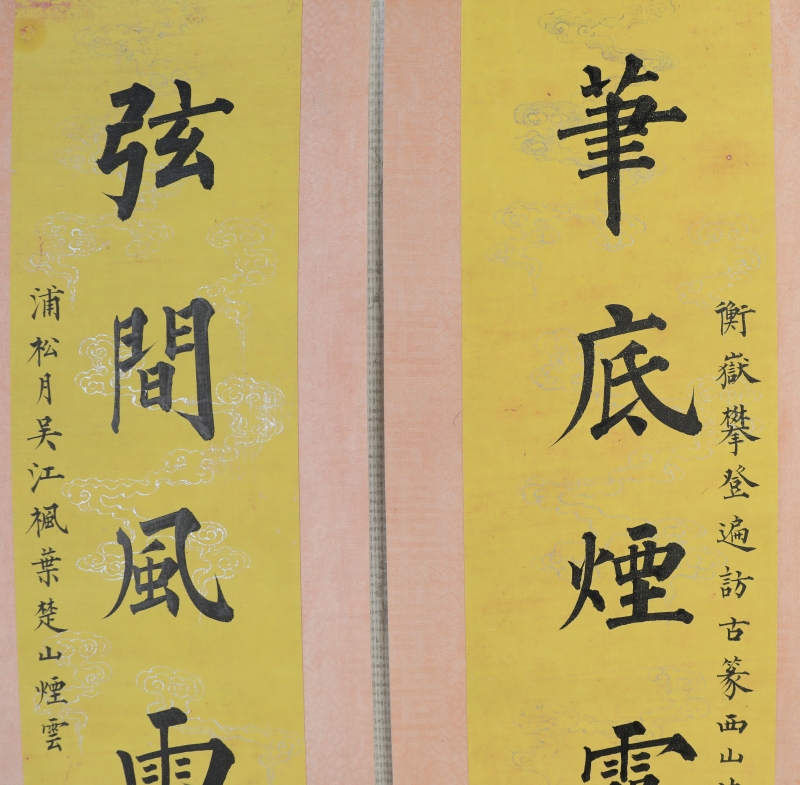 衡嶽攀登遍訪古篆西山
筆底煙
弦間風
浦松月吳江楓葉楚山煙雲